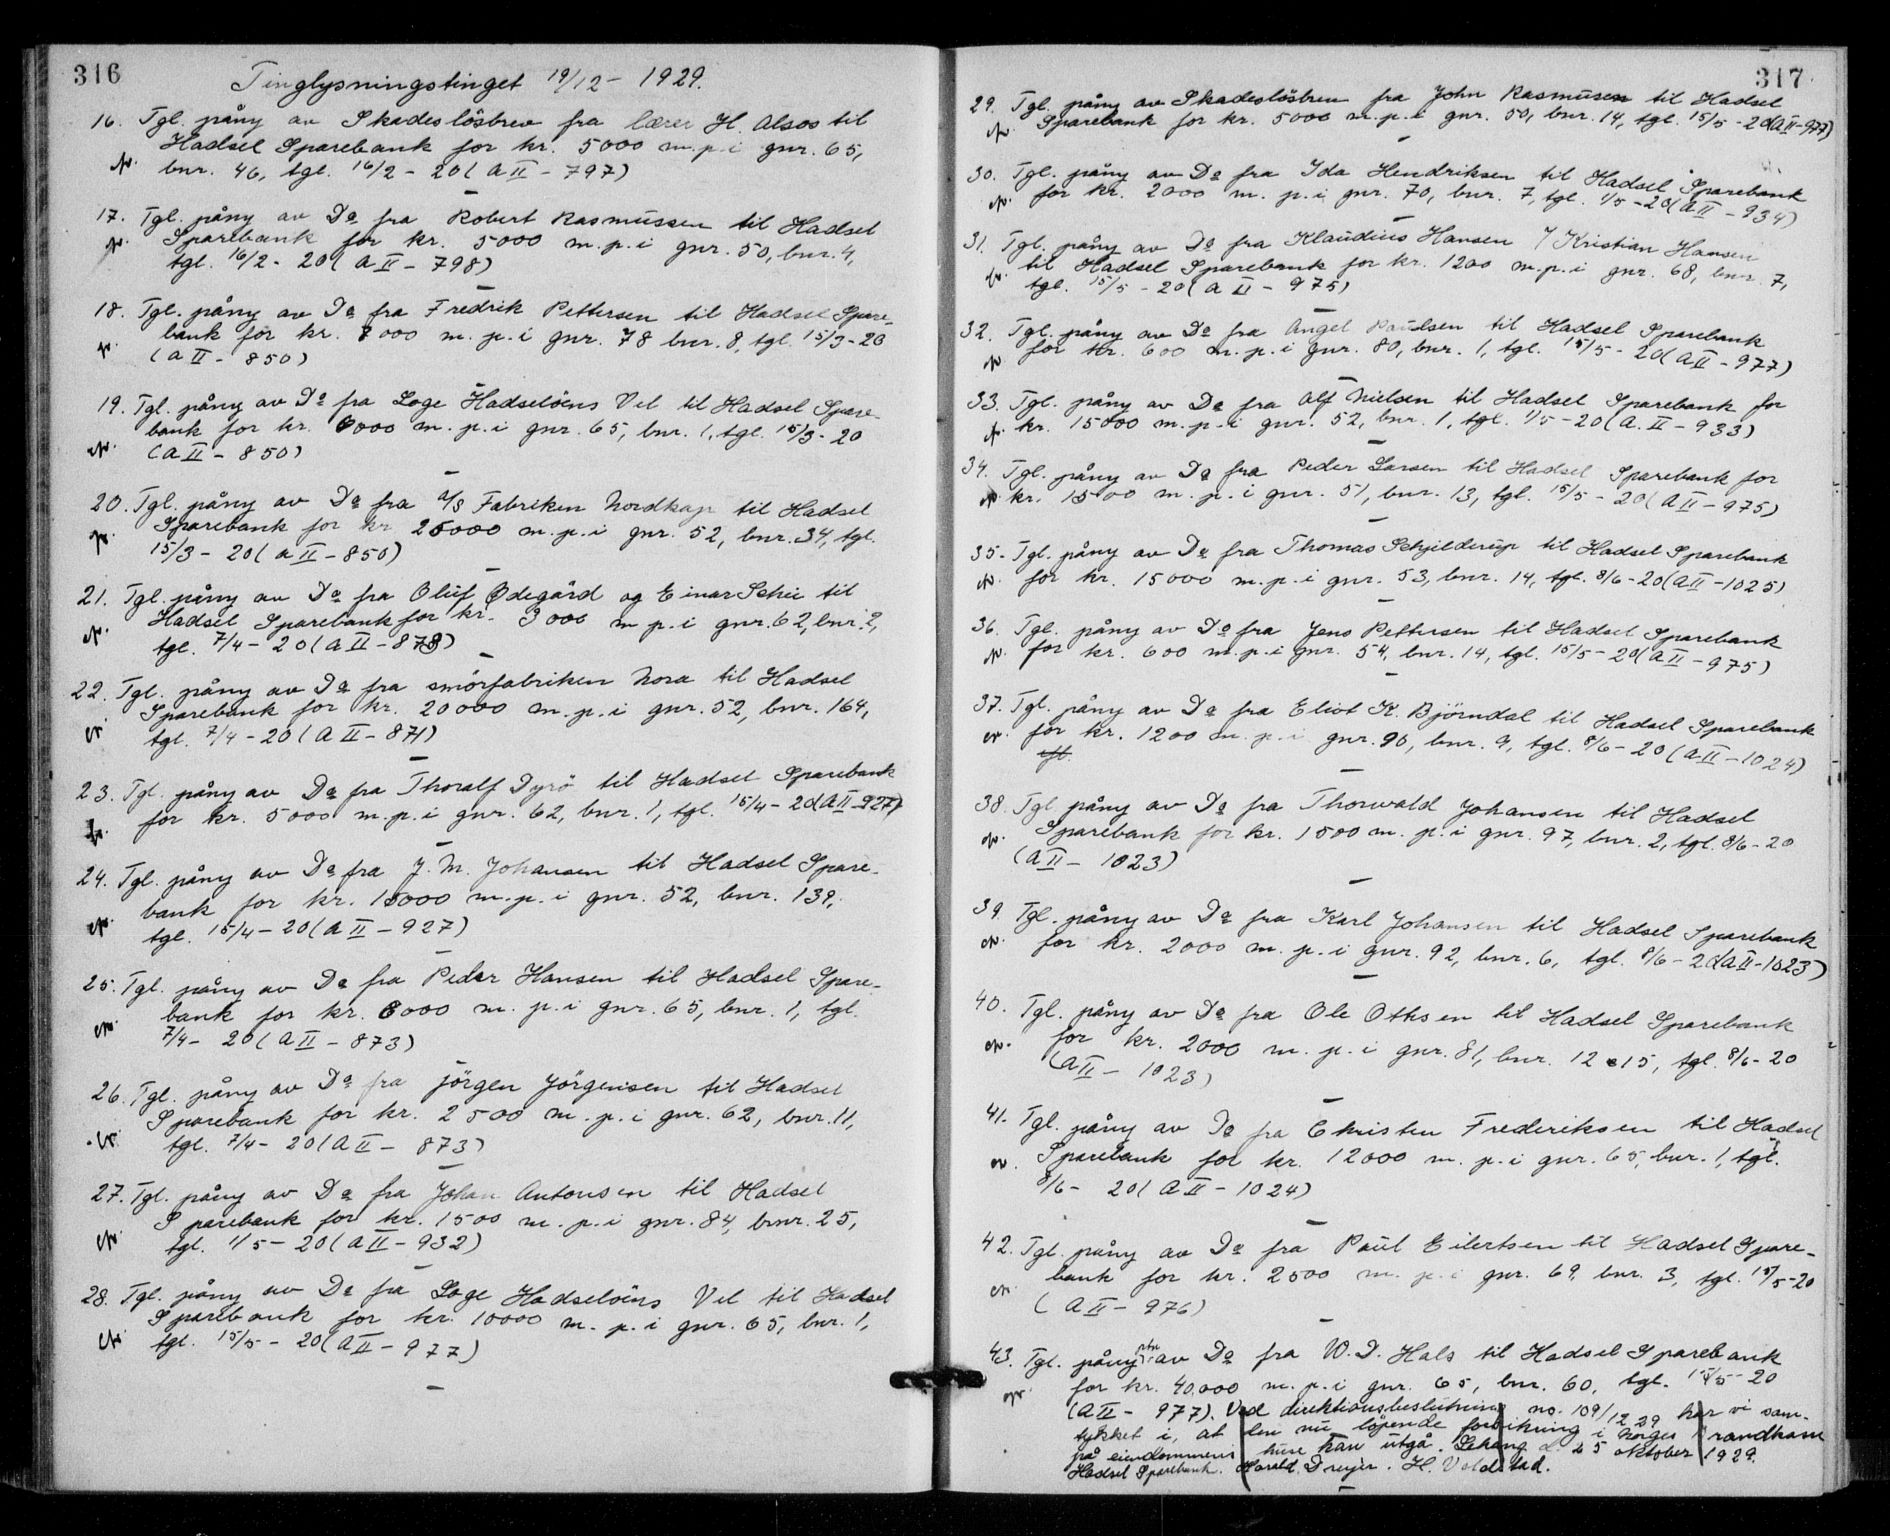 316
Tinglysningstinget 19/12 - 1929.
16. Tgl. påny av Skadesløsbrev fra lærer H. Alsos til
Hadsel Sparebank for kr. 5000 m.p.i gnr. 65,
bnr. 46, tgl. 16/2 - 20 (A II - 797)
17. Tgl. påny av Do fra Robert Rasmussen til Hadsel
Sparebank for kr. 5000 m.p.i gnr. 50, bnr. 4,
tgl. 16/2 - 20 (A II - 798)
18. Tgl. påny av Do fra Fredrik Pettersen til Hadsel Spare-
bank for kr. 7000 m.p.i gnr. 78 bnr. 8, tgl. 15/3 - 20
(A II - 850)
19. Tgl. påny av Do fra Loge Hadseløens Vel til Hadsel Spare-
bank for kr. 6000 m.p.i gnr. 65, bnr. 1, tgl. 15/3 - 20
(A II - 850)
20. Tgl. påny av Do fra A/S Fabriken Nordkap til Hadsel
Sparebank for kr 25000 m.p.i gnr. 52, bnr. 34, tgl.
15/3 - 20 (A II - 850)
21. Tgl. påny av Do fra Oluf Ødegård og Einar Schei til
Hadsel Sparebank for kr. 3000 m p.i gnr. 62, bnr. 2,
tgl. 7/4 - 20 (A II - 873)
22. Tgl. påny av Do fra smörfabriken Nora til Hadsel
Sparebank for kr. 20000 m.p.i gnr. 52, bnr. 164,
tgl. 7/4 - 20 (A II - 871)
23. Tgl. påny av Do fra Thoralf Dyrö til Hadsel Sparebank
for kr. 5000 m.p.i gnr. 62, bnr. 1, tgl. 15/4 - 20 (A II - 927)
24. Tgl. påny av Do fra J. M. Johansen til Hadsel Spare-
bank for kr. 15000 m.p.i gnr. 52, bnr. 139,
tgl. 15/4 - 20 (A II - 927)
25. Tgl. påny av Do fra Peder Hansen til Hadsel Spare-
bank for kr. 8000 m.p.i gnr. 65, bnr. 1, tgl.
7/4 - 20 (A II - 873)
26. Tgl. påny av Do fra Jörgen Jörgensen til Hadsel
Sparebank for kr. 2500 m.p.i gnr. 62, bnr. 11,
tgl. 7/4 - 20 (A II - 873)
27. Tgl. påny av Do fra Johan Antonsen til Hadsel
Sparebank for kr. 1500 m.p.i gnr. 84, bnr. 25,
tgl. 1/5 - 20 (A II - 932)
28. Tgl. påny av Do fra Loge Hadselöens Vel til Hadsel
Sparebank for kr. 10000 m.p.i gnr. 65, bnr. 1,
tgl. 15/5 - 20 (A II - 977)
317
29. Tgl. påny av Skadeslösbrev fra John Rasmussen til Hadsel
Sparebank for kr. 5000 m.p.i gnr. 50, bnr. 14, tgl. 15/5 - 20 (A II - 977)
30. Tgl. påny av Do fra Ida Hendriksen til Hadsel Sparebank
for kr. 2000 m.p.i gnr. 70, bnr. 7, tgl. 1/5 - 20 (A II - 934)
31. Tgl. påny av Do fra Klaudius Hansen / Kristian Hansen
til Hadsel Sparebank for kr. 1200 m.p.i gnr. 68, bnr. 7,
tgl. 15/5 - 20 (A II - 975)
32. Tgl. påny av Do fra Angel Paulsen til Hadsel Sparebank
for kr. 600 m.p.i gnr. 80, bnr. 1, tgl. 15/5 - 20 (A II - 977)
33. Tgl. påny av Do fra Alf Nielsen til Hadsel Sparebank for
kr. 15000 m.p.i gnr. 52, bnr. 1, tgl. 1/5 - 20 (A. II - 933)
34. Tgl. påny av Do fra Peder Larsen til Hadsel Sparebank for
kr. 1500 m.p.i gnr. 51, bnr. 13, tgl. 15/5 - 20 (A II - 975)
35. Tgl. påny av Do fra Thomas Schjelderup til Hadsel Sparebank
for kr. 15000 m.p.i gnr. 53, bnr. 14, tgl. 8/6 - 20 (A II - 1025)
36. Tgl. påny av Do fra Jens Pettersen til Hadsel Sparebank
for kr. 600 m.p.i gnr. 54, bnr. 14, tgl. 15/5 - 20 (A II - 975)
37. Tgl. påny av Do fra Eliot K. Björndal til Hadsel Sparebank
for kr. 1200 m.p.i gnr. 90, bnr. 9, tgl. 8/6 - 20 (A II - 1024)
38. Tgl påny av Do fra Thorvald Johansen til Hadsel
Sparebank for kr. 1500 m.p.i gnr. 97, bnr. 2, tgl. 8/6 - 20
(A II - 1023)
39. Tgl. påny av Do fra Karl Johansen til Hadsel Sparebank
for kr. 2000 m.p.i gnr. 92, bnr. 6, tgl. 8/6 - 20 (A II - 1023)
40. Tgl. påny av Do fra Ole Othsen til Hadsel Sparebank
for kr. 2000 m.p.i gnr. 81, bnr. 12 & 15, tgl. 8/6 - 20
(A II - 1023)
41. Tgl. påny av Do fra Christen Frederiksen til Hadsel
Sparebank for kr. 12000 m.p.i gnr. 65, bnr. 1, tgl.
8/6 - 20 (A II - 1024)
42. Tgl. påny av Do fra Paul Eilertsen til Hadsel Spare-
bank for kr. 2500 m.p.i gnr. 69, bnr. 3, tgl. 15/5 - 20
(A II - 976)
43. Tgl. påny av Do fra W. D. Hals til Hadsel Sparebank
for kr. 40,000 m.p.i gnr. 65, bnr. 60, tgl. 15/5 - 20
(A II - 977). Ved direktionsbeslutning no. 109/12 29 har vi sam-
tykket i, at den nu löpende forsikring i Norges Brandkasse
på eiendommens huse kan utgå. d. 25 oktober 1929.
Hadsel Sparebank. Harald Dreyer. H. Voldstad.